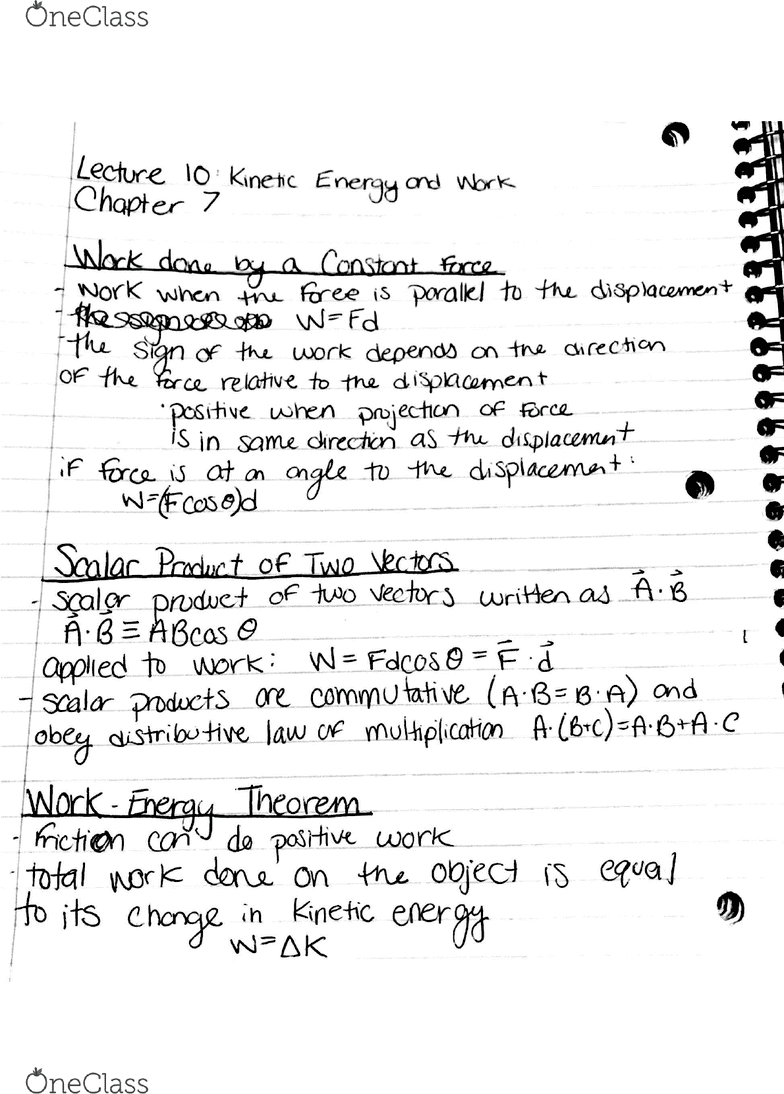 OneClass
Lecture 10: Kinetic Energy and Work
Chapter 7
Work done by a Constant Force
- work when the force is parallel to the displacement
- W=Fd
- the sign of the work depends on the direction
of the force relative to the displacement
· positive when projection of force
is in same direction as the displacement
if force is at an angle to the displacement:
W=(Fcosθ)d
Scalar Product of Two Vectors
- scalar product of two vectors written as A⃗·B⃗
A⃗·B⃗ ≡ ABcos θ
applied to work: W=Fdcosθ = F⃗·d⃗
- scalar products are commutative (A·B=B·A) and
obey distributive law of multiplication A·(B+C)=A·B+A·C
Work-Energy Theorem
- friction can do positive work
- total work done on the object is equal
to its change in kinetic energy
W=ΔK
OneClass